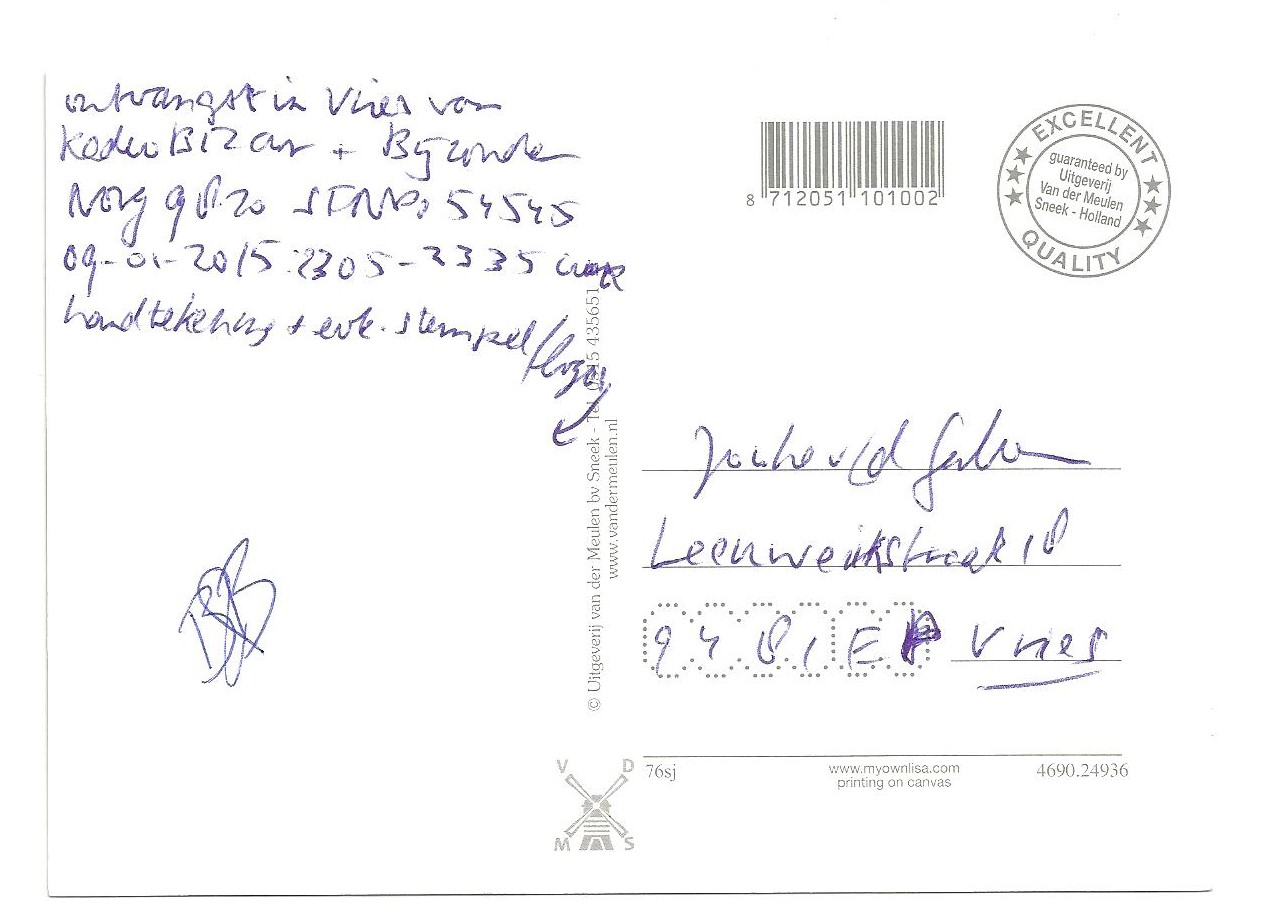 ontvangst in Vries van
Radio BIZar + Bijzonder
Norg 98.20 STMNo 54545
09-01-2015 2305-2335 uur
handtekening + evt. stempel/logo
8 712051 101002
EXCELLENT
guaranteed by
Uitgeverij
Van der Meulen
Sneek - Holland
QUALITY
© Uitgeverij van der Meulen bv Sneek - Tel. 0515 435651
www.vandermeulen.nl
v/d
Leeuwerikstraat 18
9481E Vries
V D
M S
76sj
www.myownlisa.com
printing on canvas
4690.24936